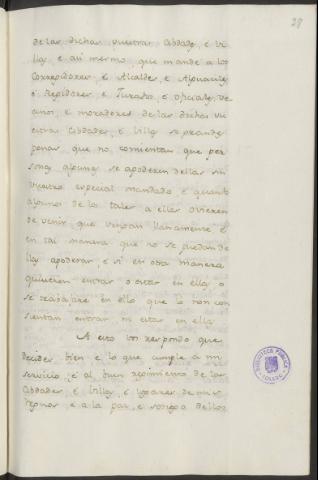 28
de las dichas vuestras Cibdades, e Vi
llas e asi mesmo, que mande a los
Corregidores, e Alcaldes, e Alguaciles
e Regidores e Jurados, e oficiales, ve
cinos, e moradores de las dichas vu
estras Cibdades, e Villas so grandes
penas, que no consientan que per
sonas algunas se apoderen dellas sin
vuestro especial mandado e quando
algunos de los tales a ellas ovieren
de venir, que vengan llanamente e
en tal manera, que no se puedan de
llas apoderar, e si en otra manera
quisieren entrar o estar en ellas, o
se trabajare en ello que lo non con
sientan entrar, ni estar en ella
A esto vos respondo que
decides bien e lo que cumple a mi
servicio, e al buen regimiento de las
Cibdades, e Villas, e logares de mis
Regnos, e a la paz, e sosiego dellos
BIBLIOTECA PUBLICA
TOLEDO